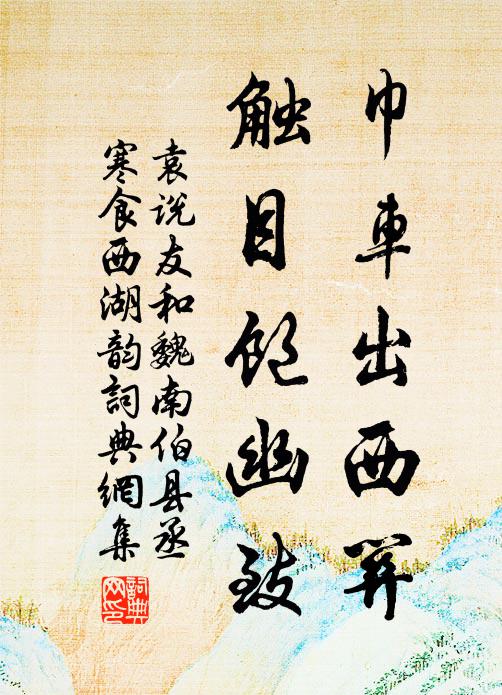 巾車出西関
触目饱幽致
袁说友和魏南伯县丞
寒食西湖韵词典網集
詞典網印